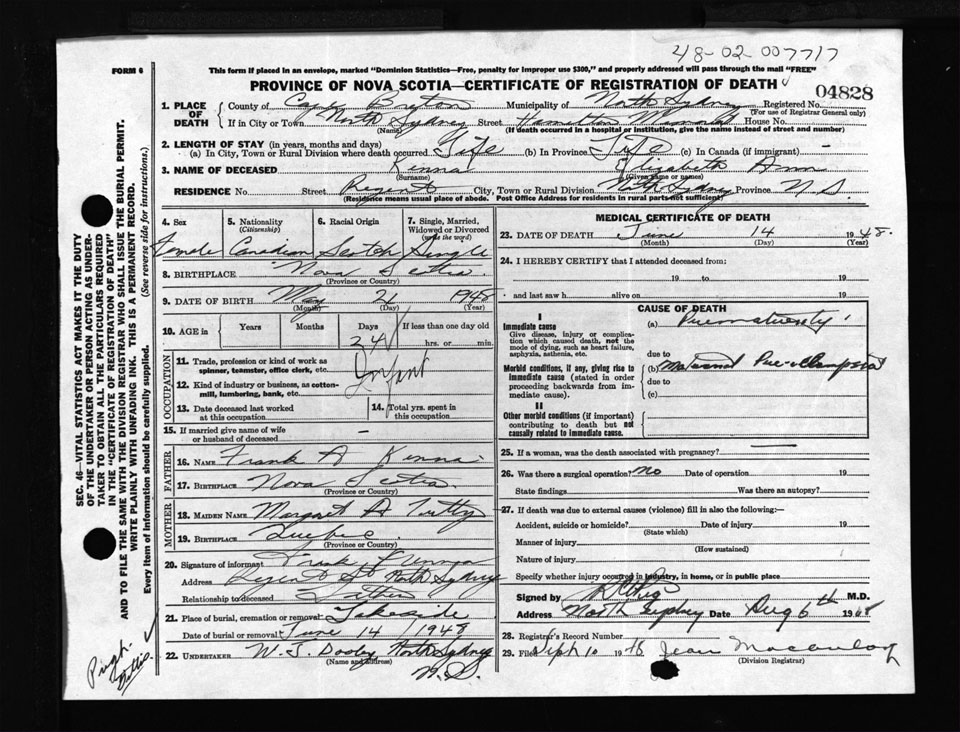 48-02-007717
FORM 6
This form if placed in an envelope, marked "Dominion Statistics—Free, penalty for improper use $300," and properly addressed will pass through the mail "FREE"
PROVINCE OF NOVA SCOTIA—CERTIFICATE OF REGISTRATION OF DEATH
04828
1. PLACE OF DEATH { County of Cape Breton Municipality of North Sydney Registered No.
(For use of Registrar General only)
If in City or Town North Sydney Street Hamilton Memorial House No.
(Name) (If death occurred in a hospital or institution, give the name instead of street and number)
2. LENGTH OF STAY (in years, months and days)
(a) In City, Town or Rural Division where death occurred Life (b) In Province Life (c) In Canada (if immigrant) -
3. NAME OF DECEASED Kenna Elizabeth Ann
(Surname) (Given name or names)
RESIDENCE No. Street Regent City, Town or Rural Division North Sydney Province N S.
(Residence means usual place of abode. Post Office Address for residents in rural parts not sufficient)
4. Sex 5. Nationality 6. Racial Origin 7. Single, Married, Widowed or Divorced
(Citizenship) (write the word)
Female Canadian Scotch Single
8. BIRTHPLACE Nova Scotia
(Province or Country)
9. DATE OF BIRTH May 21 1948
(Month) (Day) (Year)
10. AGE in { Years Months Days If less than one day old
24 hrs. or min.
OCCUPATION
11. Trade, profession or kind of work as spinner, teamster, office clerk, etc. Infant
12. Kind of industry or business, as cotton-mill, lumbering, bank, etc.
13. Date deceased last worked at this occupation 14. Total yrs. spent in this occupation
15. If married give name of wife or husband of deceased -
FATHER
16. NAME Frank A Kenna
17. BIRTHPLACE Nova Scotia
(Province or Country)
MOTHER
18. MAIDEN NAME Margaret A Tutty
19. BIRTHPLACE Quebec
(Province or Country)
20. Signature of informant Frank Kenna
Address Regent St North Sydney
Relationship to deceased Father
21. Place of burial, cremation or removal Lakeside
Date of burial or removal June 14 / 1948
22. UNDERTAKER W. J. Dooley North Sydney
(Name and address) N. S.
MEDICAL CERTIFICATE OF DEATH
23. DATE OF DEATH June 14 1948.
(Month) (Day) (Year)
24. I HEREBY CERTIFY that I attended deceased from:
19 to 19
and last saw h alive on 19
CAUSE OF DEATH
I
Immediate cause
Give disease, injury or complication which caused death, not the mode of dying, such as heart failure, asphyxia, asthenia, etc.
(a) Prematurity
due to
Morbid conditions, if any, giving rise to immediate cause (stated in order proceeding backwards from immediate cause).
(b) Maternal Pre-eclampsia
due to
(c)
II
Other morbid conditions (if important) contributing to death but not causally related to immediate cause.
25. If a woman, was the death associated with pregnancy?
26. Was there a surgical operation? No Date of operation 19
State findings Was there an autopsy?
27. If death was due to external causes (violence) fill in also the following:—
Accident, suicide or homicide? Date of injury 19
(State which)
Manner of injury
(How sustained)
Nature of injury
Specify whether injury occurred in industry, in home, or in public place
Signed by M.D.
Address North Sydney Date Aug 6th 1948
28. Registrar's Record Number
29. Filed Sept 10 1948 Jean
(Division Registrar)
SEC. 46—VITAL STATISTICS ACT MAKES IT THE DUTY
OF THE UNDERTAKER OR PERSON ACTING AS UNDER-
TAKER TO OBTAIN ALL THE PARTICULARS REQUIRED
IN THE "CERTIFICATE OF REGISTRATION OF DEATH"
AND TO FILE THE SAME WITH THE DIVISION REGISTRAR WHO SHALL ISSUE THE BURIAL PERMIT.
WRITE PLAINLY WITH UNFADING INK. THIS IS A PERMANENT RECORD.
Every item of information should be carefully supplied. (See reverse side for instructions.)